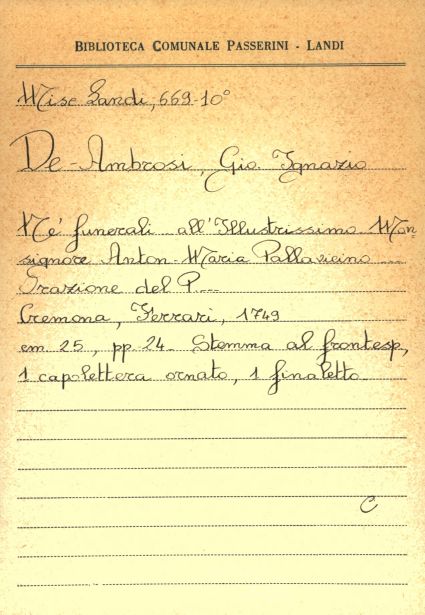 BIBLIOTECA COMUNALE PASSERINI - LANDI
Misc Landi, 669-10°
De-Ambrosi, Gio. Ignazio
Ne' funerali all'Illustrissimo Mon-
signore Anton-Maria Pallavicino ---
Orazione del P. ---
Cremona, Ferrari, 1749
cm 25, pp. 24. Stemma al frontesp,
1 capolettera ornato, 1 finaletto.
C